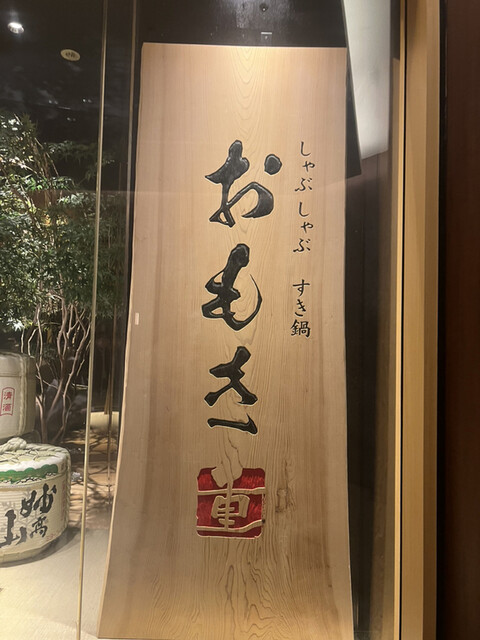 しゃぶしゃぶ すき鍋
おもき
重
清酒
妙高山